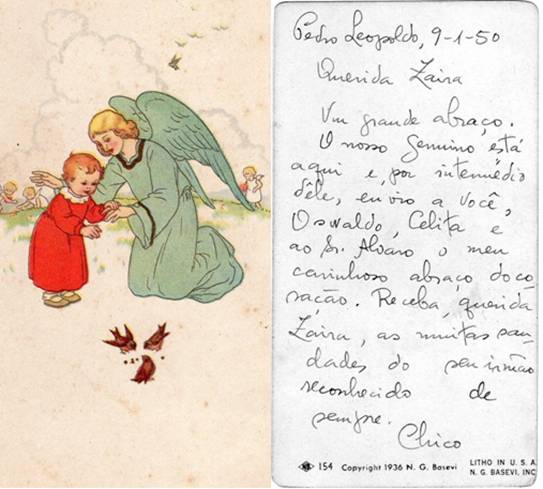 Pedro Leopoldo, 9-1-50
Querida Zaira
Um grande abraço.
O nosso Genuino está
aqui e, por intermédio
dêle, envio a você,
Oswaldo, Celita e
ao Sr. Alvaro o meu
carinhoso abraço do co
ração. Receba, querida
Zaira, as muitas sau
dades do seu irmão
reconhecido de
sempre.
Chico
154 Copyright 1936 N. G. Basevi
LITHO IN U. S. A.
N. G. BASEVI, INC